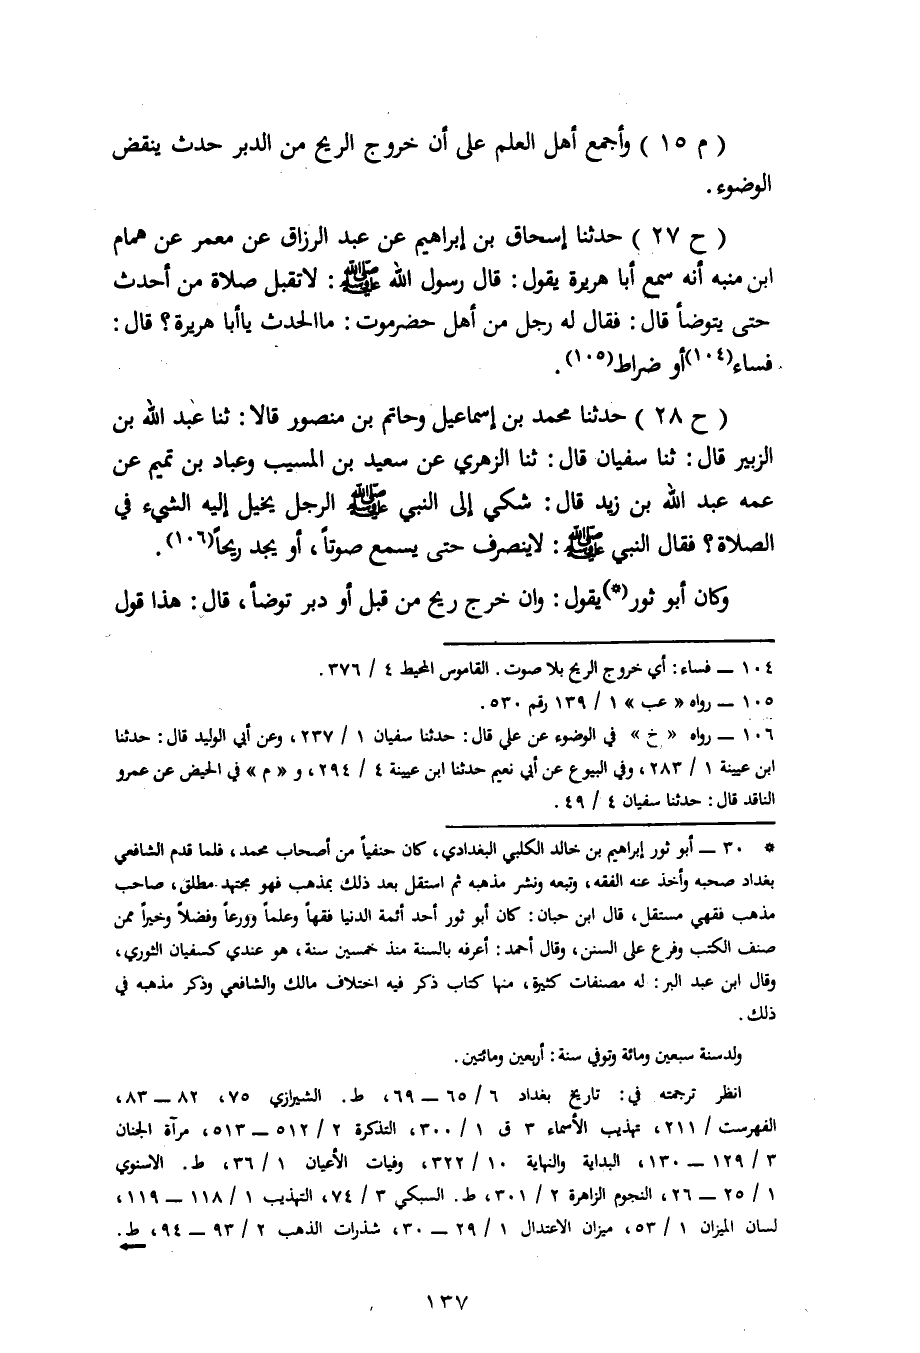 ( م ١٥ ) وأجمع أهل العلم على أن خروج الريح من الدبر حدث ينقض
الوضوء .
( ح ٢٧ ) حدثنا إسحاق بن إبراهيم عن عبد الرزاق عن معمر عن همام
ابن منبه أنه سمع أبا هريرة يقول : قال رسول الله ﷺ : لاتقبل صلاة من أحدث
حتى يتوضأ قال : فقال له رجل من أهل حضرموت : ماالحدث ياأبا هريرة ؟ قال :
فساء(١٠٤)أو ضراط(١٠٥) .
( ح ٢٨ ) حدثنا محمد بن إسماعيل وحاتم بن منصور قالا : ثنا عبد الله بن
الزبير قال : ثنا سفيان قال : ثنا الزهري عن سعيد بن المسيب وعباد بن تميم عن
عمه عبد الله بن زيد قال : شكي إلى النبي ﷺ الرجل يخيل إليه الشيء في
الصلاة ؟ فقال النبي ﷺ : لاينصرف حتى يسمع صوتاً ، أو يجد ريحاً(١٠٦) .
وكان أبو ثور(*)يقول : وان خرج ريح من قبل أو دبر توضأ ، قال : هذا قول
١٠٤ ــ فساء : أي خروج الريح بلا صوت . القاموس المحيط ٤ / ٣٧٦ .
١٠٥ ــ رواه « عب » ١ / ١٣٩ رقم ٥٣٠ .
١٠٦ ــ رواه « خ » في الوضوء عن علي قال : حدثنا سفيان ١ / ٢٣٧ ، وعن أبي الوليد قال : حدثنا
ابن عيينة ١ / ٢٨٣ ، وفي البيوع عن أبي نعيم حدثنا ابن عيينة ٤ / ٢٩٤ ، و « م » في الحيض عن عمرو
الناقد قال : حدثنا سفيان ٤ / ٤٩ .
* ٣٠ ــ أبو ثور إبراهيم بن خالد الكلبي البغدادي ، كان حنفياً من أصحاب محمد ، فلما قدم الشافعي
بغداد صحبه وأخذ عنه الفقه ، وتبعه ونشر مذهبه ثم استقل بعد ذلك بمذهب فهو مجتهد مطلق ، صاحب
مذهب فقهي مستقل ، قال ابن حبان : كان أبو ثور أحد أئمة الدنيا فقهاً وعلماً وورعاً وفضلاً وخيراً ممن
صنف الكتب وفرع على السنن ، وقال أحمد : أعرفه بالسنة منذ خمسين سنة ، هو عندي كسفيان الثوري ،
وقال ابن عبد البر : له مصنفات كثيرة ، منها كتاب ذكر فيه اختلاف مالك والشافعي وذكر مذهبه في
ذلك .
ولدسنة سبعين ومائة وتوفي سنة : أربعين ومائتين .
انظر ترجمته في : تاريخ بغداد ٦ / ٦٥ ــ ٦٩ ، ط . الشيرازي ٧٥ ، ٨٢ ــ ٨٣ ،
الفهرست / ٢١١ ، تهذيب الأسماء ٣ ق ١ / ٣٠٠ ، التذكرة ٢ / ٥١٢ ــ ٥١٣ ، مرآة الجنان
٣ / ١٢٩ ــ ١٣٠ ، البداية والنهاية ١٠ / ٣٢٢ ، وفيات الأعيان ١ / ٣٦ ، ط . الاسنوي
١ / ٢٥ ــ ٢٦ ، النجوم الزاهرة ٢ / ٣٠١ ، ط . السبكي ٣ / ٧٤ ، التهذيب ١ / ١١٨ ــ ١١٩ ،
لسان الميزان ١ / ٥٣ ، ميزان الاعتدال ١ / ٢٩ ــ ٣٠ ، شذرات الذهب ٢ / ٩٣ ــ ٩٤ ، ط .
١٣٧